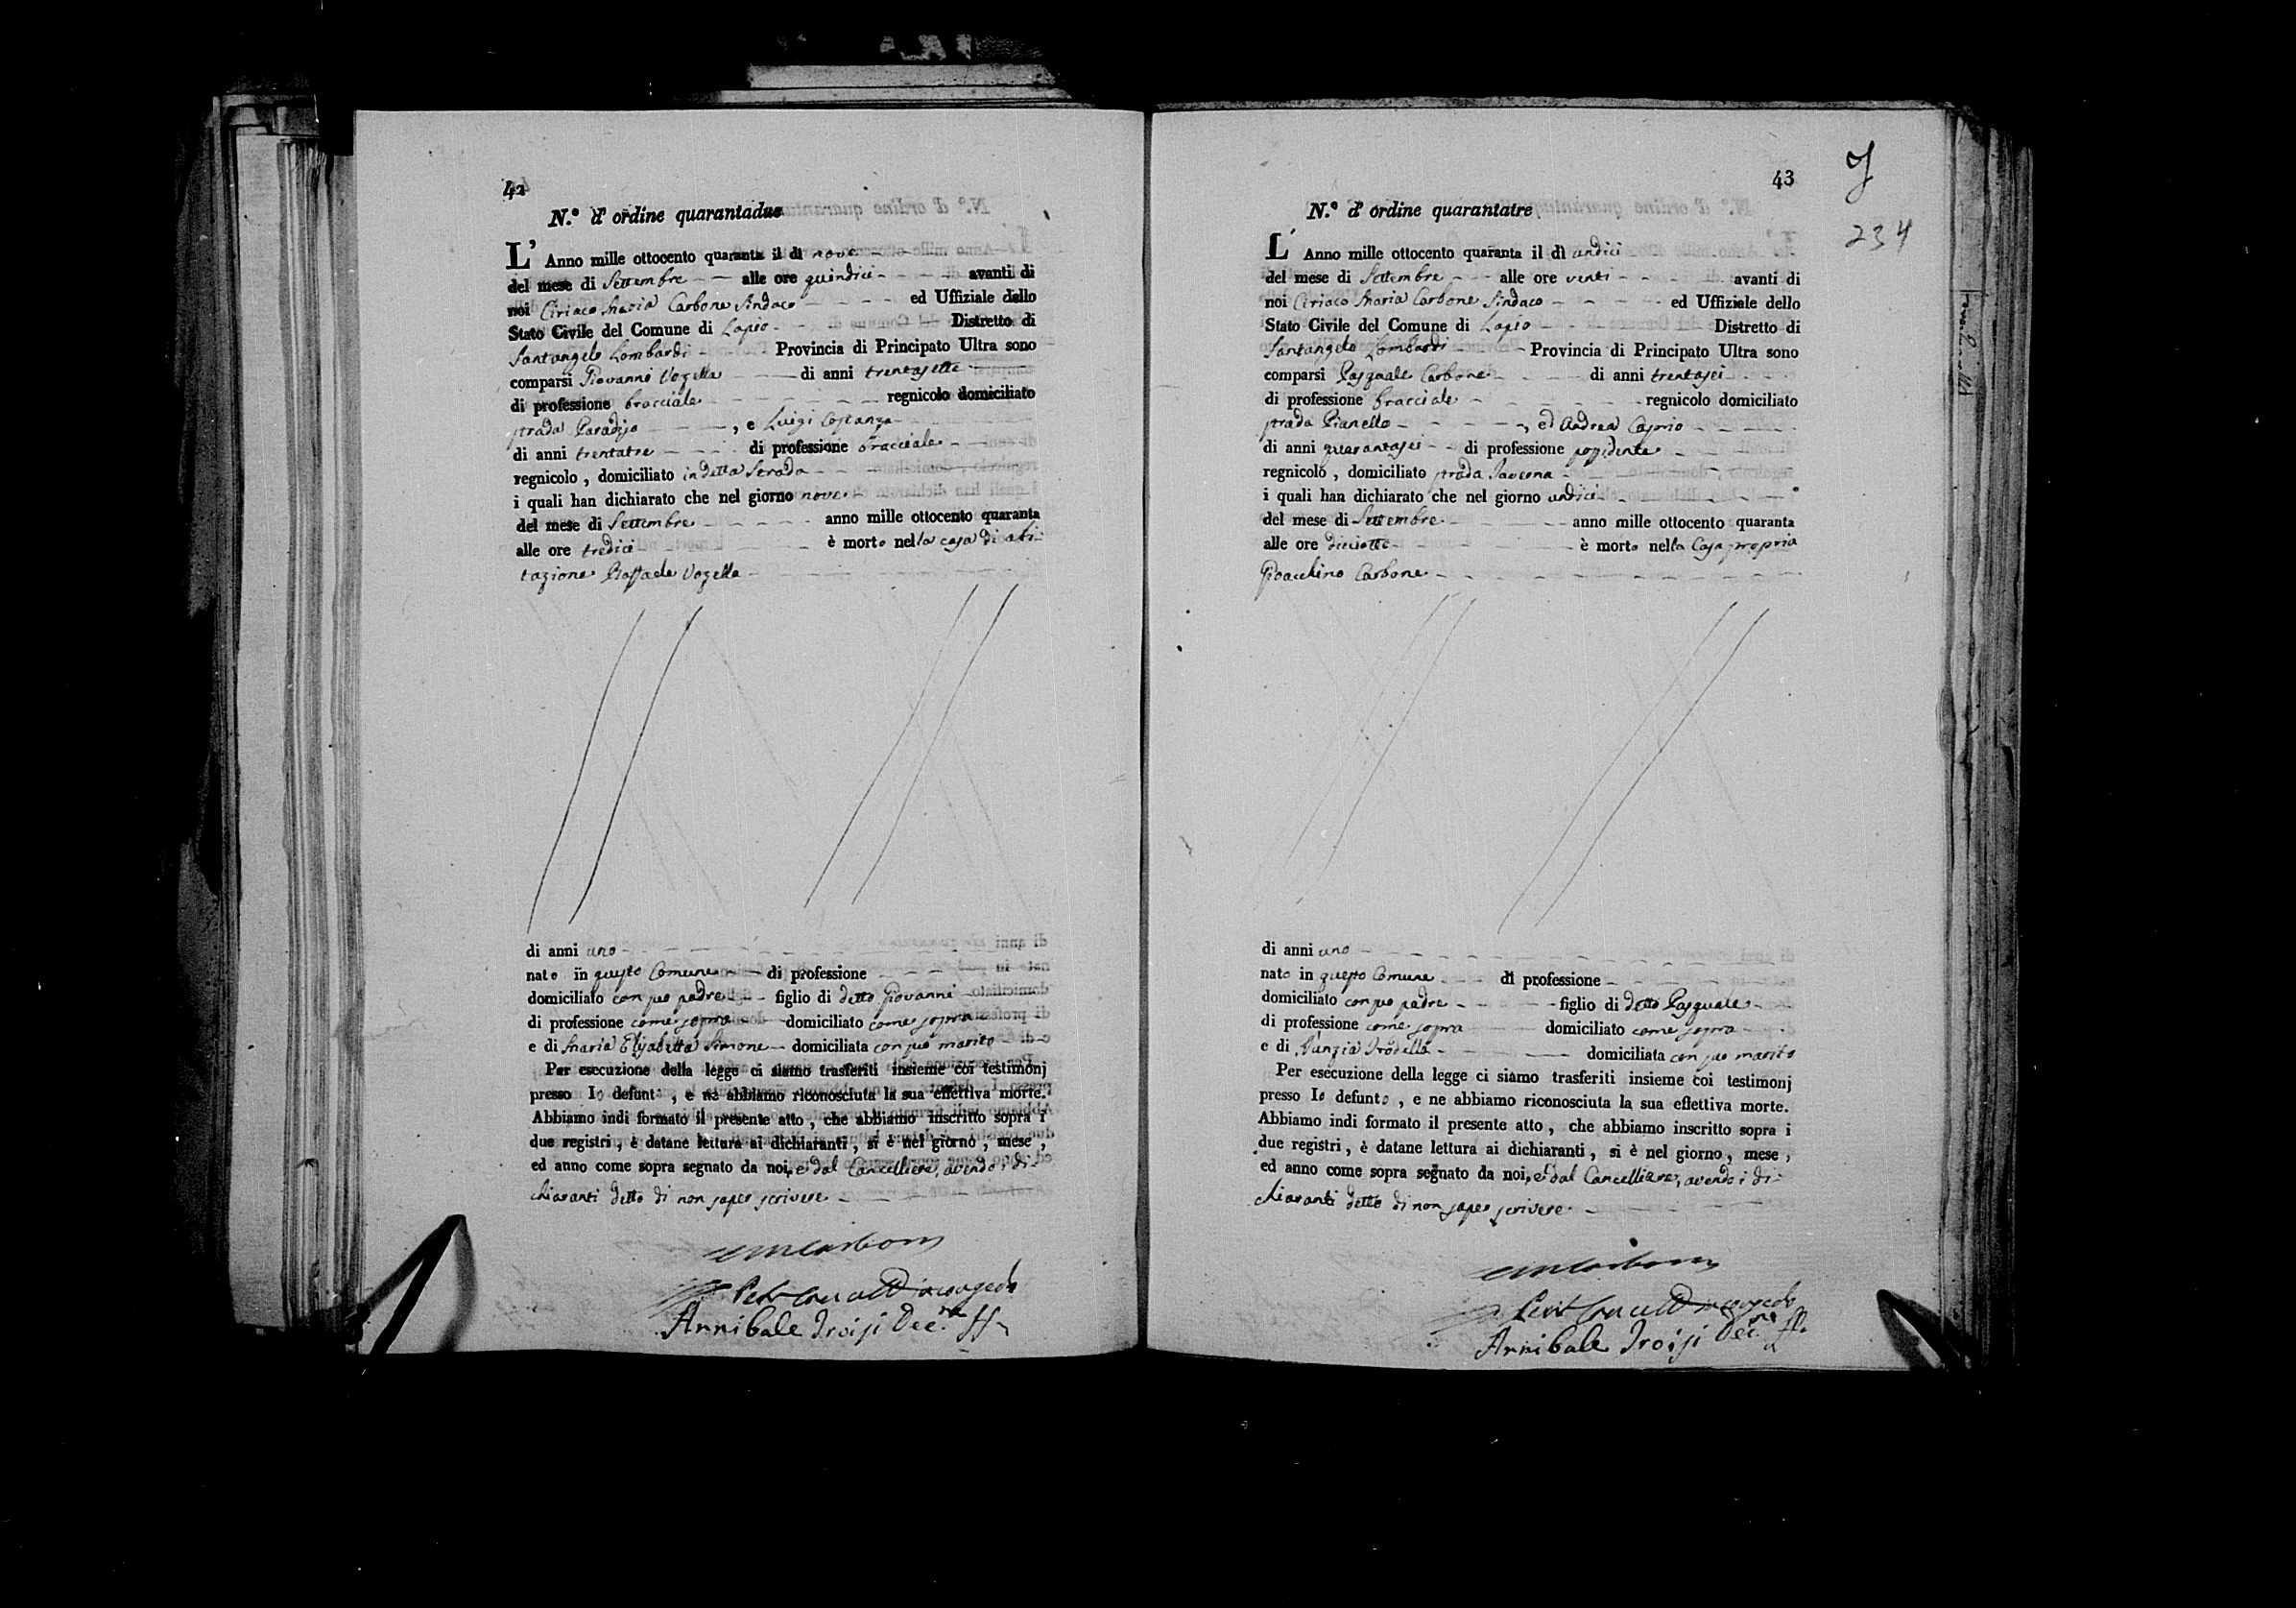 42
N.º d' ordine quarantadue
L' Anno mille ottocento quaranta il dì nove
del mese di Settembre alle ore quindici avanti di
noi Ciriaco Maria Carbone Sindaco ed Uffiziale dello
Stato Civile del Comune di Lapio Distretto di
Santangelo Lombardi Provincia di Principato Ultra sono
comparsi Giovanni Vozella di anni trentasette
di professione bracciale regnicolo domiciliato
strada Paradiso , e Luigi Costanza
di anni trentatre di professione bracciale
regnicolo , domiciliato in detta Strada
i quali han dichiarato che nel giorno nove
del mese di Settembre anno mille ottocento quaranta
alle ore tredici è morto nella casa di abi-
tazione Raffaele Vozella
di anni uno
nato in questo Comune di professione
domiciliato con suo padre figlio di detto Giovanni
di professione come sopra domiciliato come sopra
e di Maria Elisabetta Simone domiciliata con suo marito
Per esecuzione della legge ci siamo trasferiti insieme coi testimonj
presso lo defunt , e ne abbiamo riconosciuta la sua effettiva morte.
Abbiamo indi formato il presente atto , che abbiamo inscritto sopra i
due registri , e datane lettura ai dichiaranti , si è nel giorno , mese ,
ed anno come sopra segnato da noi, e dal Cancelliere, avendo i di-
chiaranti detto di non saper scrivere
Annibale Troisi Dec.
43
J
234
N.º d' ordine quarantatre
L' Anno mille ottocento quaranta il dì undici
del mese di Settembre alle ore venti avanti di
noi Ciriaco Maria Carbone Sindaco ed Uffiziale dello
Stato Civile del Comune di Lapio Distretto di
Santangelo Lombardi Provincia di Principato Ultra sono
comparsi Pasquale Carbone di anni trentasei
di professione bracciale regnicolo domiciliato
strada Pianello , ed Andrea Caprio
di anni quarantasei di professione possidente
regnicolo , domiciliato strada
i quali han dichiarato che nel giorno undici
del mese di Settembre anno mille ottocento quaranta
alle ore diciotto è morto nella Casa propria
Gioacchino Carbone
di anni uno
nato in questo Comune di professione
domiciliato con suo padre figlio di detto Pasquale
di professione come sopra domiciliato come sopra
e di Nunzia domiciliata con suo marito
Per esecuzione della legge ci siamo trasferiti insieme coi testimonj
presso lo defunto , e ne abbiamo riconosciuta la sua effettiva morte.
Abbiamo indi formato il presente atto , che abbiamo inscritto sopra i
due registri , è datane lettura ai dichiaranti , si è nel giorno , mese ,
ed anno come sopra segnato da noi, e dal Cancelliere, avendo i di-
chiaranti detto di non saper scrivere
Annibale Troisi Dec.